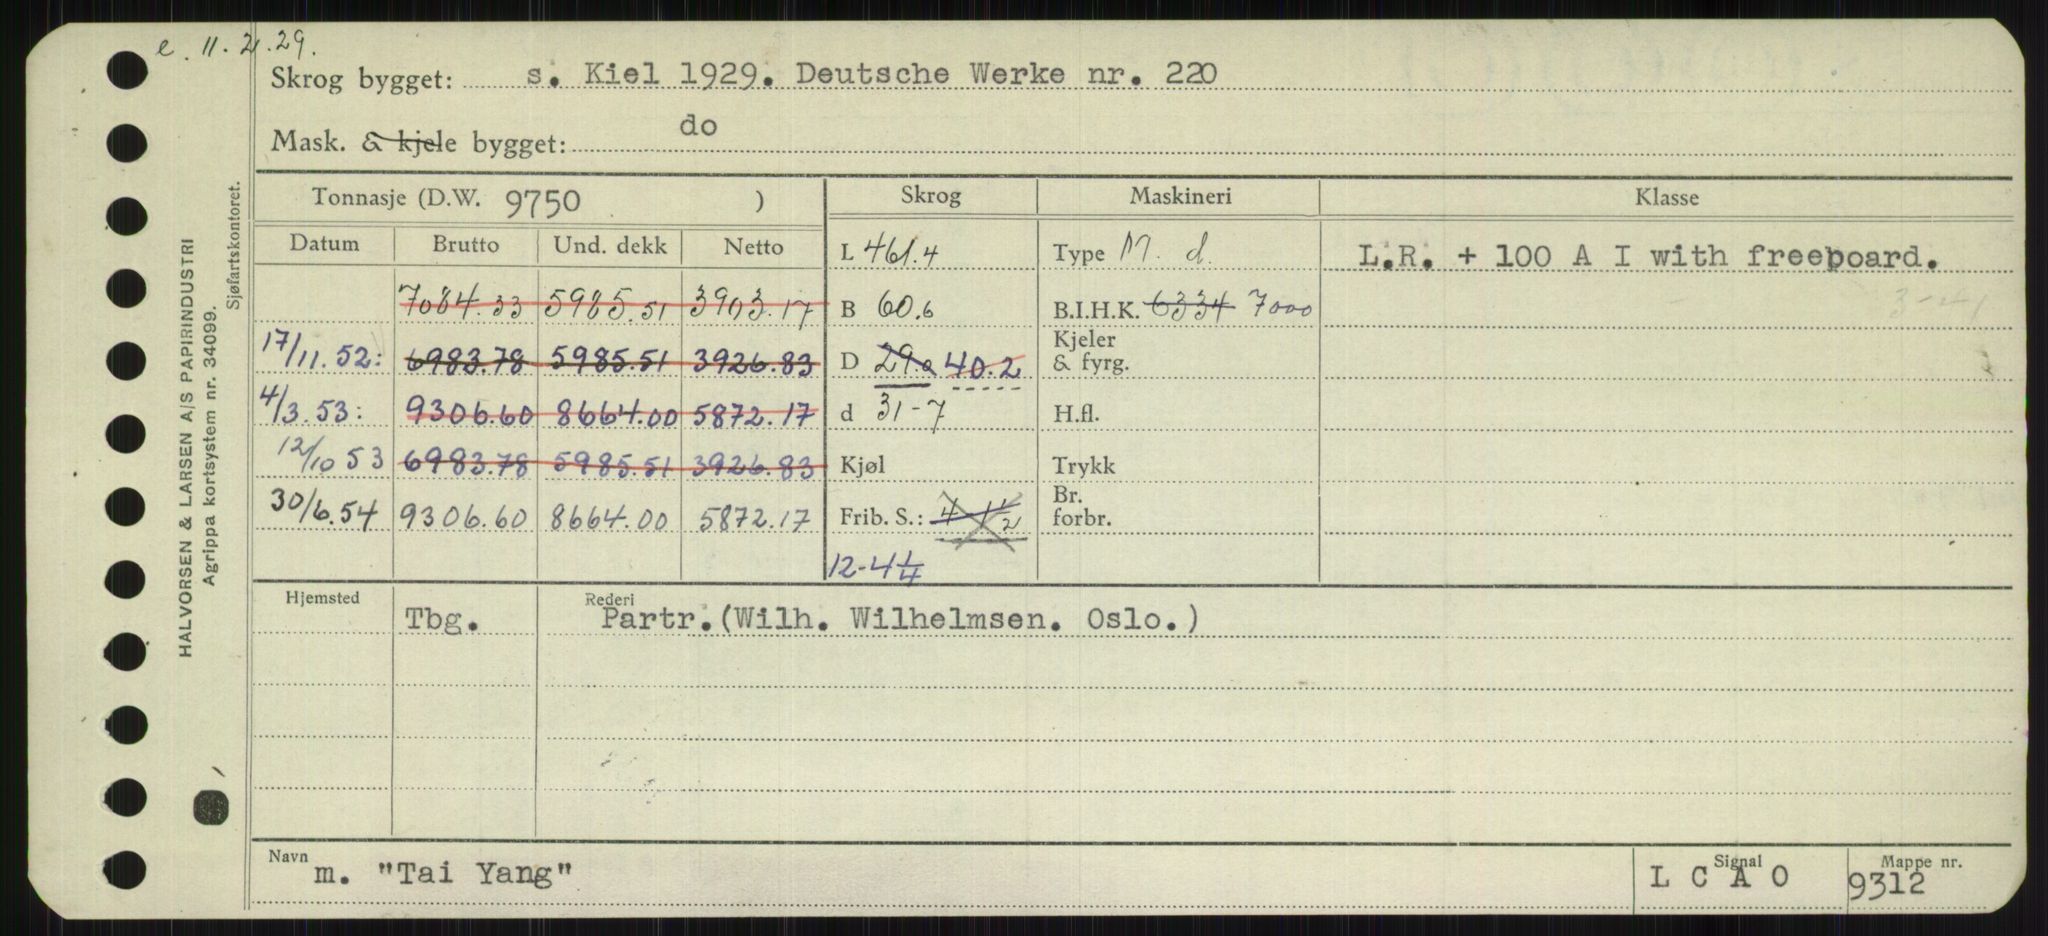 e. 11.2.29.
Skrog bygget: s. Kiel 1929. Deutsche Werke nr. 220
Mask. & kjele bygget: do
Tonnasje (D.W. 9750 )
Skrog
Maskineri
Klasse
Datum Brutto Und. dekk Netto
L 461.4
Type M. d.
L.R. + 100 A I with freeboard.
7084.33 5985.51 3903.17
B 60.6
B.I.H.K. 6334 7000
17/11.52: 6983.78 5985.51 3926.83
D 29.2 40.2
Kjeler
& fyrg.
4/3.53: 9306.60 8664.00 5872.17
d 31-7
H.fl.
12/10 53 6983.78 5985.51 3926.83
Kjøl
Trykk
30/6.54 9306.60 8664.00 5872.17
Frib. S.: 4-1 1/2
Br.
forbr.
12-4 1/4
Hjemsted
Rederi
Tbg. Partr.(Wilh. Wilhelmsen. Oslo.)
Navn
m. "Tai Yang"
Signal
L C A O
Mappe nr.
9312
HALVORSEN & LARSEN A/S PAPIRINDUSTRI
Agrippa kortsystem nr. 34099.
Sjøfartskontoret.